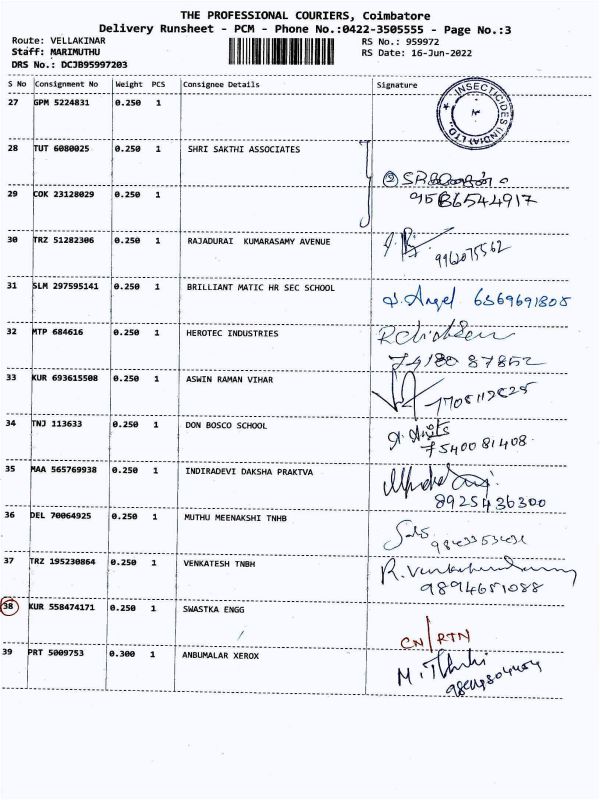 THE PROFESSIONAL COURIERS, Coimbatore
Delivery Runsheet - PCM - Phone No.:0422-3505555 - Page No.:3
Route: VELLAKINAR RS No.: 959972
Staff: MARIMUTHU RS Date: 16-Jun-2022
DRS No.: DCJB95997203
S No Consignment No Weight PCS Consignee Details Signature
27 GPM 5224831 0.250 1 INSECTICIDES (INDIA) LTD.
28 TUT 6080025 0.250 1 SHRI SAKTHI ASSOCIATES
29 COK 23128029 0.250 1
30 TRZ 51282306 0.250 1 RAJADURAI KUMARASAMY AVENUE
31 SLM 297595141 0.250 1 BRILLIANT MATIC HR SEC SCHOOL Angel 6369691808
32 MTP 684616 0.250 1 HEROTEC INDUSTRIES
33 KUR 693615508 0.250 1 ASWIN RAMAN VIHAR
34 TNJ 113633 0.250 1 DON BOSCO SCHOOL 7540081408
35 MAA 565769938 0.250 1 INDIRADEVI DAKSHA PRAKTVA 8925436300
36 DEL 70064925 0.250 1 MUTHU MEENAKSHI TNHB
37 TRZ 195230864 0.250 1 VENKATESH TNBH 9894651088
38 KUR 558474171 0.250 1 SWASTKA ENGG CN/RTN
39 PRT 5009753 0.300 1 ANBUMALAR XEROX